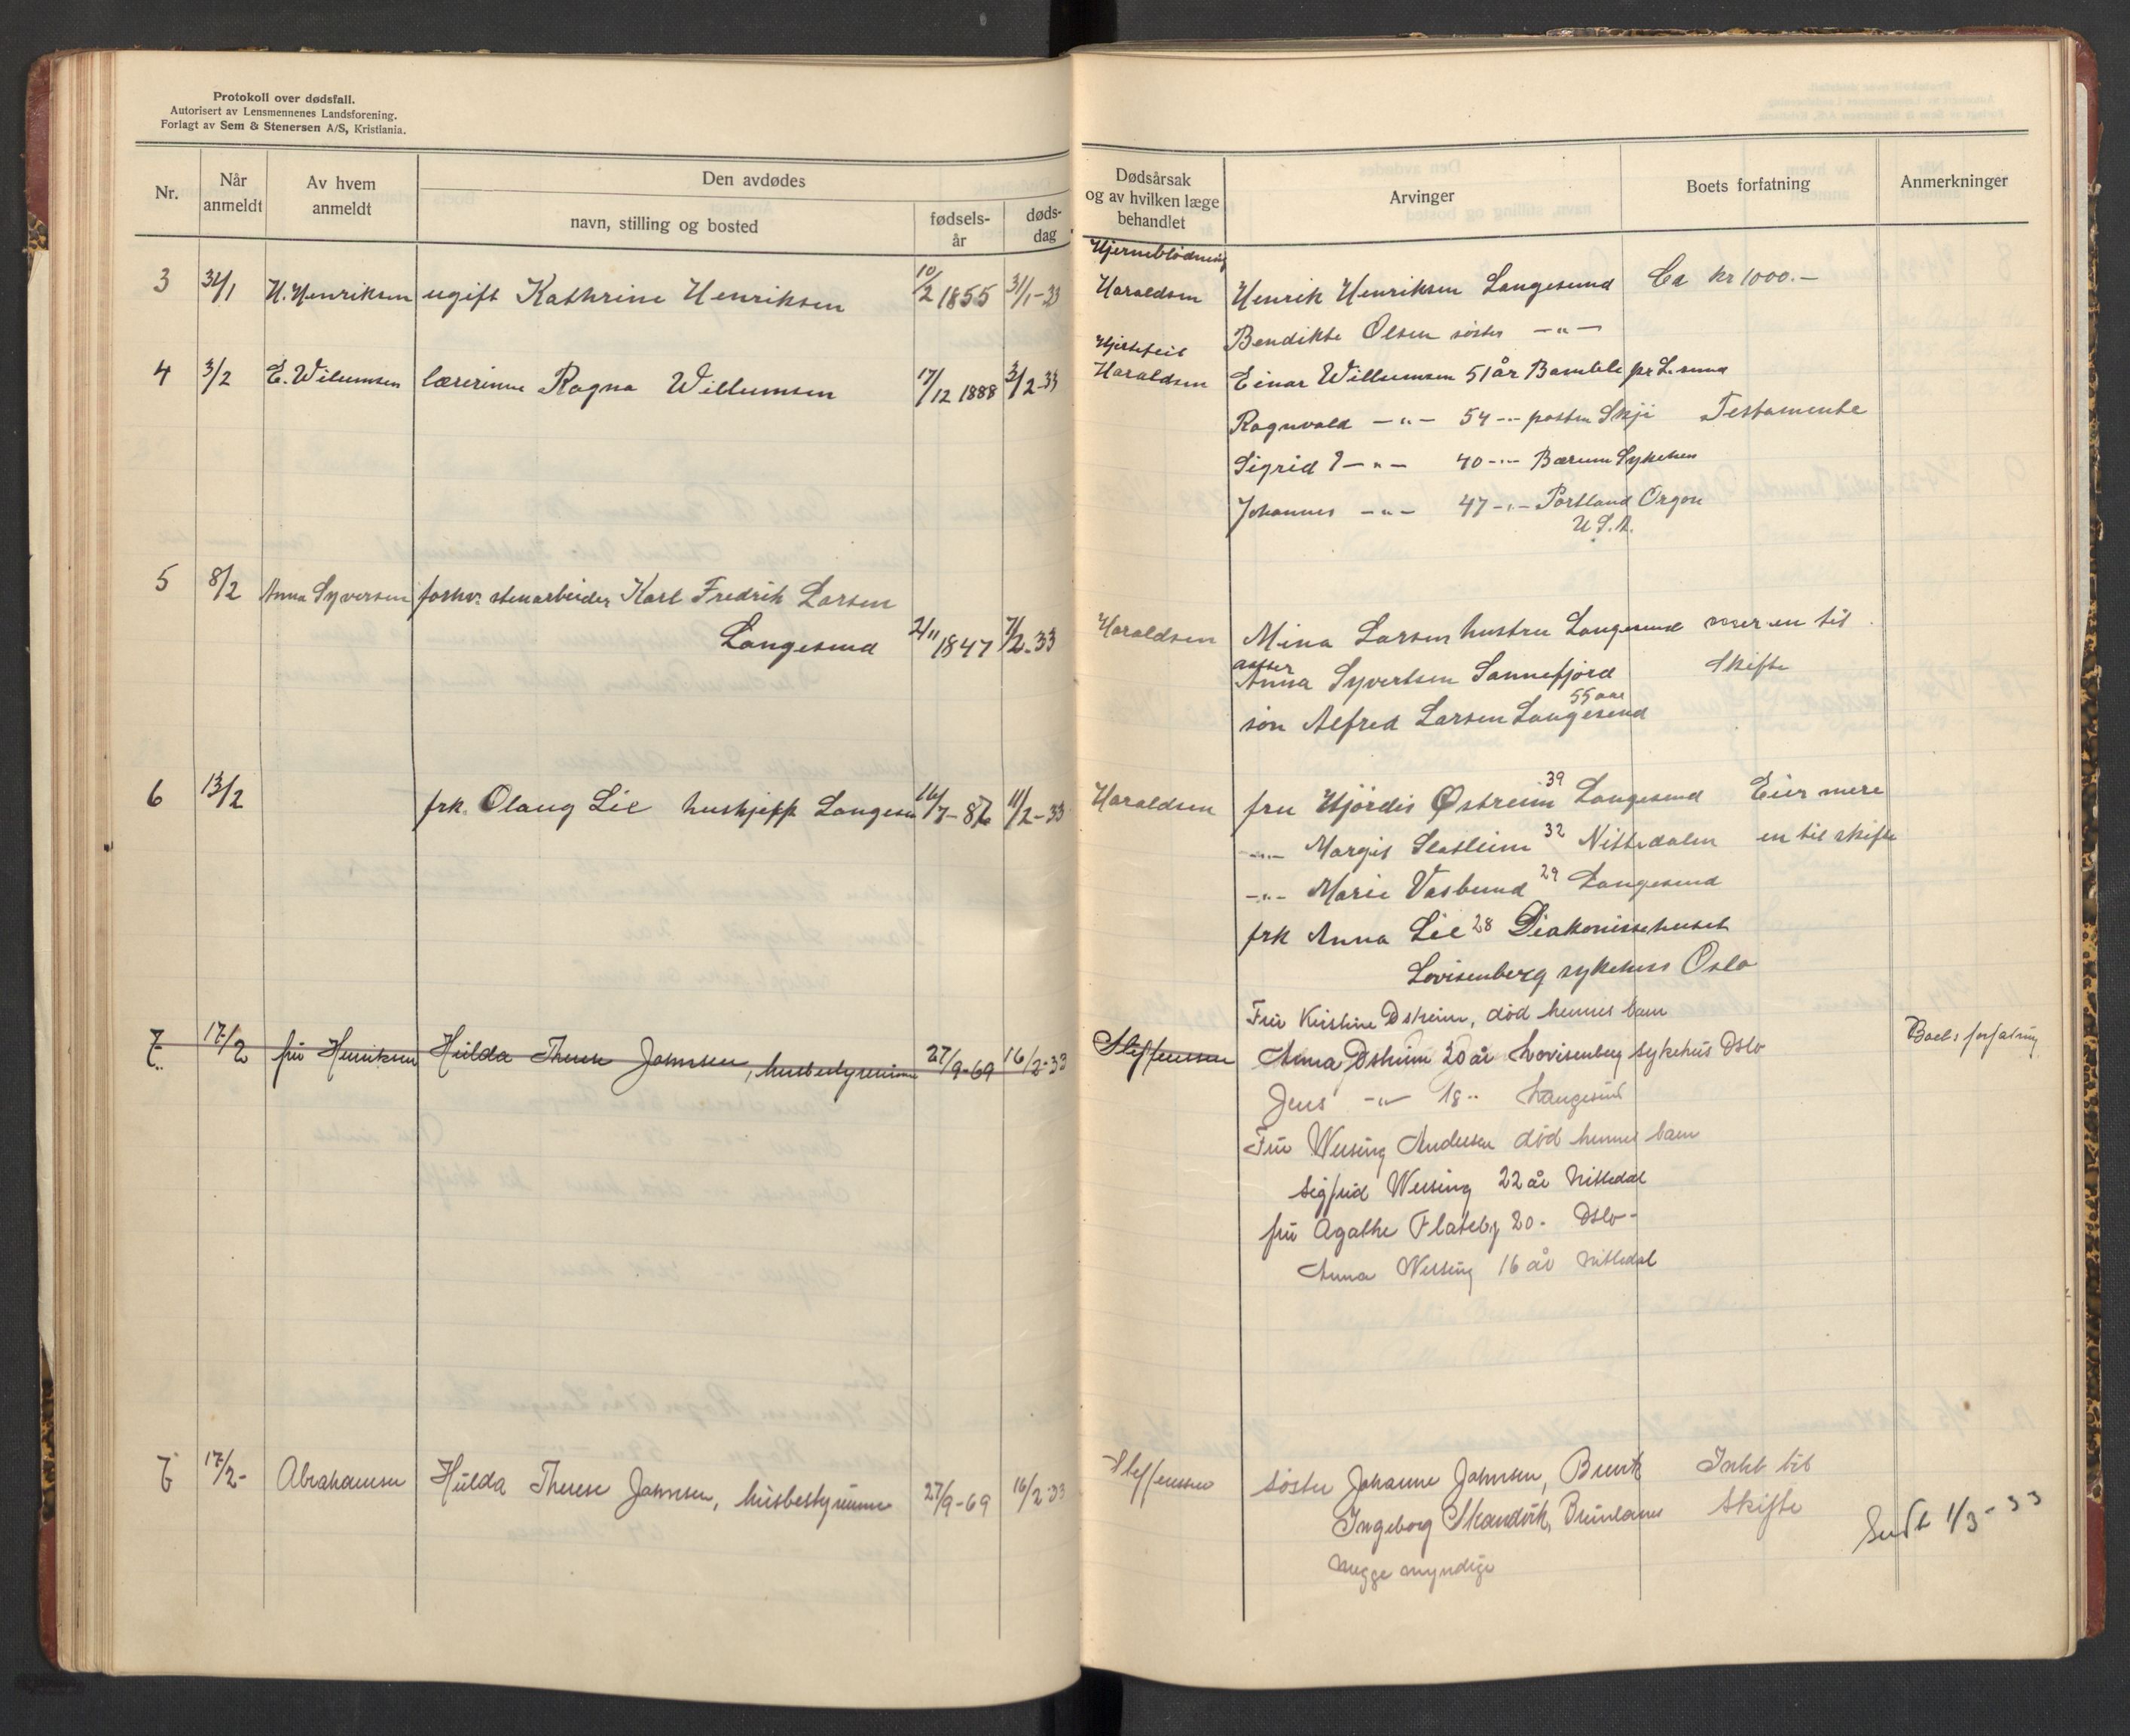 Protokoll over dødsfall.
Autorisert av Lensmennenes Landsforening.
Forlagt av Sem & Stenersen A/S, Kristiania.
Nr.
Når anmeldt
Av hvem anmeldt
Den avdødes
navn, stilling og bosted
fødsels-år
døds-dag
Dødsårsak og av hvilken læge behandlet
Arvinger
Boets forfatning
Anmerkninger
3 31/1 H. Henriksen ugift Kathrine Henriksen 10/2 1855 31/1-33
Hjerneblødning
Haraldsen Henrik Henriksen Langesund Ca kr 1000.-
Bendikte Olsen søster -"-
4 3/2 E. Willumsen lærerinne Ragna Willumsen 17/12 1888 3/2-33
Hjertefeil
Haraldsen Einar Willumsen 51 år Bamble pr L.sund
Ragnvald -"- 54 -"- Skji Testamente
Sigrid -"- 40 -"- Bærum Sykehus
Johannes -"- 47 -"- Portland Orgon
U.S.A.
5 8/2 Anna Syversen forhv. stenarbeider Karl Fredrik Larsen
Langesund 2/11 1847 7/2-33
Haraldsen Mina Larsen hustru Langesund mer en til
datter
Anna Syvertsen Sannefjord Skifte
55 aar
søn Alfred Larsen Langesund
6 13/2 frk. Olaug Lie hushjelp Langesu 16/7-82 11/2-33
Haraldsen fru Hjørdis Østreim 39 Langesund Eier mere
-"- Margit 32 Nittedalen en til skifte
-"- Marie Vasbund 29 Langesund
frk Anna Lie 28 Diakonissehuset
Lovisenberg sykehus Oslo
Fru Kristine Osheim, død hennes barn
7 17/2 fru Henriksen Hulda Therese Johnsen, husbestyrerinne 27/9-69 16/2-33
Steffensen Anna Osheim 20 år Lovisenberg sykehus Oslo Boets forfatning
Jens -"- 18 " Langesund
Fru Wessing Andersen død hennes barn
Sigfrid Wessing 22 år Nittedal
fru Agathe Flateby 20 - Oslo -
Anna Wessing 16 år Nittedal
7 17/2- Abrahamsen Hulda Therese Johnsen, husbestyrerinne 27/9-69 16/2-33
Steffensen søster Johanne Johnsen, Intet til
Ingeborg Skandvik, Brunlanes Skifte
Sendt 1/3-33
begge myndige